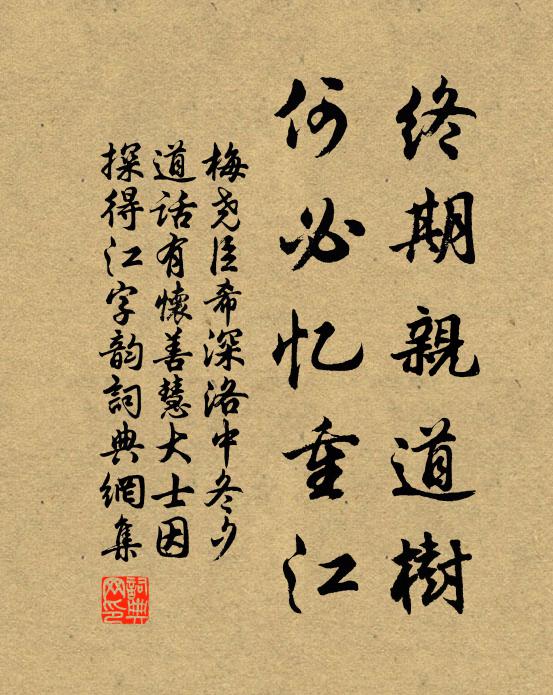 終期親道樹
何必忆重江
梅尧臣希深洛中冬夕
道話有懷善慧大士因
探得江字韵詞典網集
詞典网印